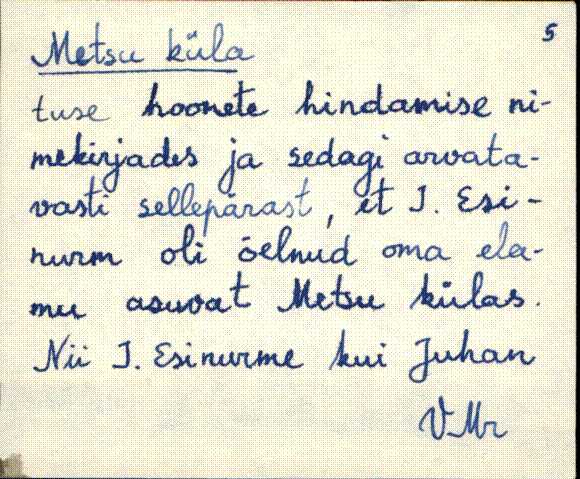 5
Metsu küla
tuse hoonete hindamise ni-
mekirjades ja sedagi arvata-
vasti sellepärast, et J. Esi-
nurm oli öelnud oma ela-
mu asuvat Metsu külas.
Nii J. Esinurme kui Juhan
VMr